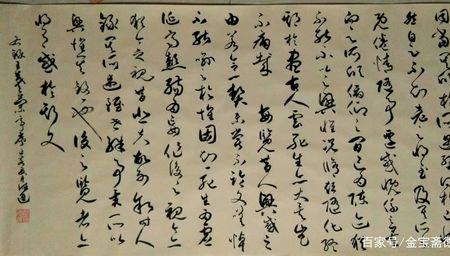 然自足不知老之將至及其所
既倦情隨事遷感慨係之矣
向之所欣俛仰之間已為陳跡猶
不能不以之興懷況修短隨化終
期於盡古人云死生亦大矣豈
不痛哉 每覽昔人興感之
由若合一契未嘗不臨文嗟悼
不能喻之於懷固知一死生為虛
誕齊彭殤為妄作後之視今亦
猶今之視昔悲夫故列敘時人
錄其所述雖世殊事異所以
興懷其致一也後之覽者亦
將有感於斯文
右錄王羲之蘭亭序
百家号/金宝斋